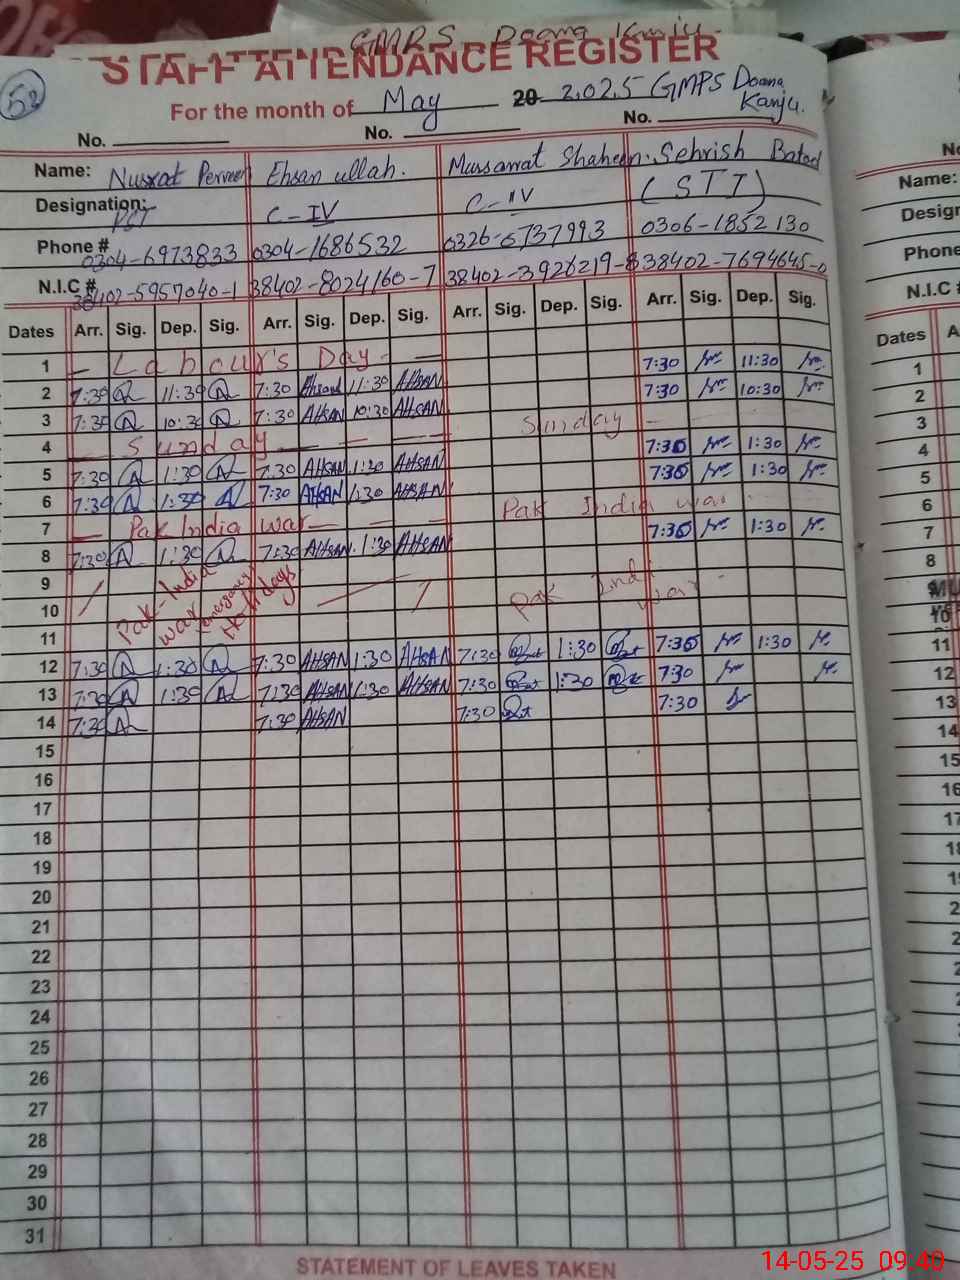 GMPS Doana Kanju
STAFF ATTENDANCE REGISTER
52
For the month of May 20 2025 GMPS Doana Kanju.
No. No. No.
Name: Nusrat Perveen Ehsan ullah. Mussarat Shaheen. Sehrish Batool
Designation: PST C-IV C-IV (STI)
Phone # 0304-6973833 0304-1686532 0326-6737993 0306-1852130
N.I.C # 38402-5957040-1 38402-8024160-7 38402-3926219-8 38402-7694645-0
Dates Arr. Sig. Dep. Sig. Arr. Sig. Dep. Sig. Arr. Sig. Dep. Sig. Arr. Sig. Dep. Sig.
1 — Labour's Day — —
2 7:30 11:30 7:30 Ahsan 11:30 AHSAN 7:30 11:30
3 7:30 10:30 7:30 AHSAN 10:30 AHSAN 7:30 10:30
4 — Sunday — — — — Sunday —
5 7:30 1:30 7:30 AHSAN 1:30 AHSAN 7:30 1:30
6 7:30 1:30 7:30 AHSAN 1:30 AHSAN 7:30 1:30
7 — Pak India war — — — Pak India war
8 7:30 1:30 7:30 AHSAN 1:30 AHSAN 7:30 1:30
9 Pak-India war emergency Holidays Pak India war
10
11
12 7:30 1:30 7:30 AHSAN 1:30 AHSAN 7:30 1:30 7:30 1:30
13 7:30 1:30 7:30 AHSAN 1:30 AHSAN 7:30 1:30 7:30
14 7:30 7:30 AHSAN 7:30 7:30
15
16
17
18
19
20
21
22
23
24
25
26
27
28
29
30
31
STATEMENT OF LEAVES TAKEN
Name:
Phone
N.I.C #
Dates A
1
2
3
4
5
6
7
8
9
10
11
12
13
14
15
16
17
18
14-05-25 09:40